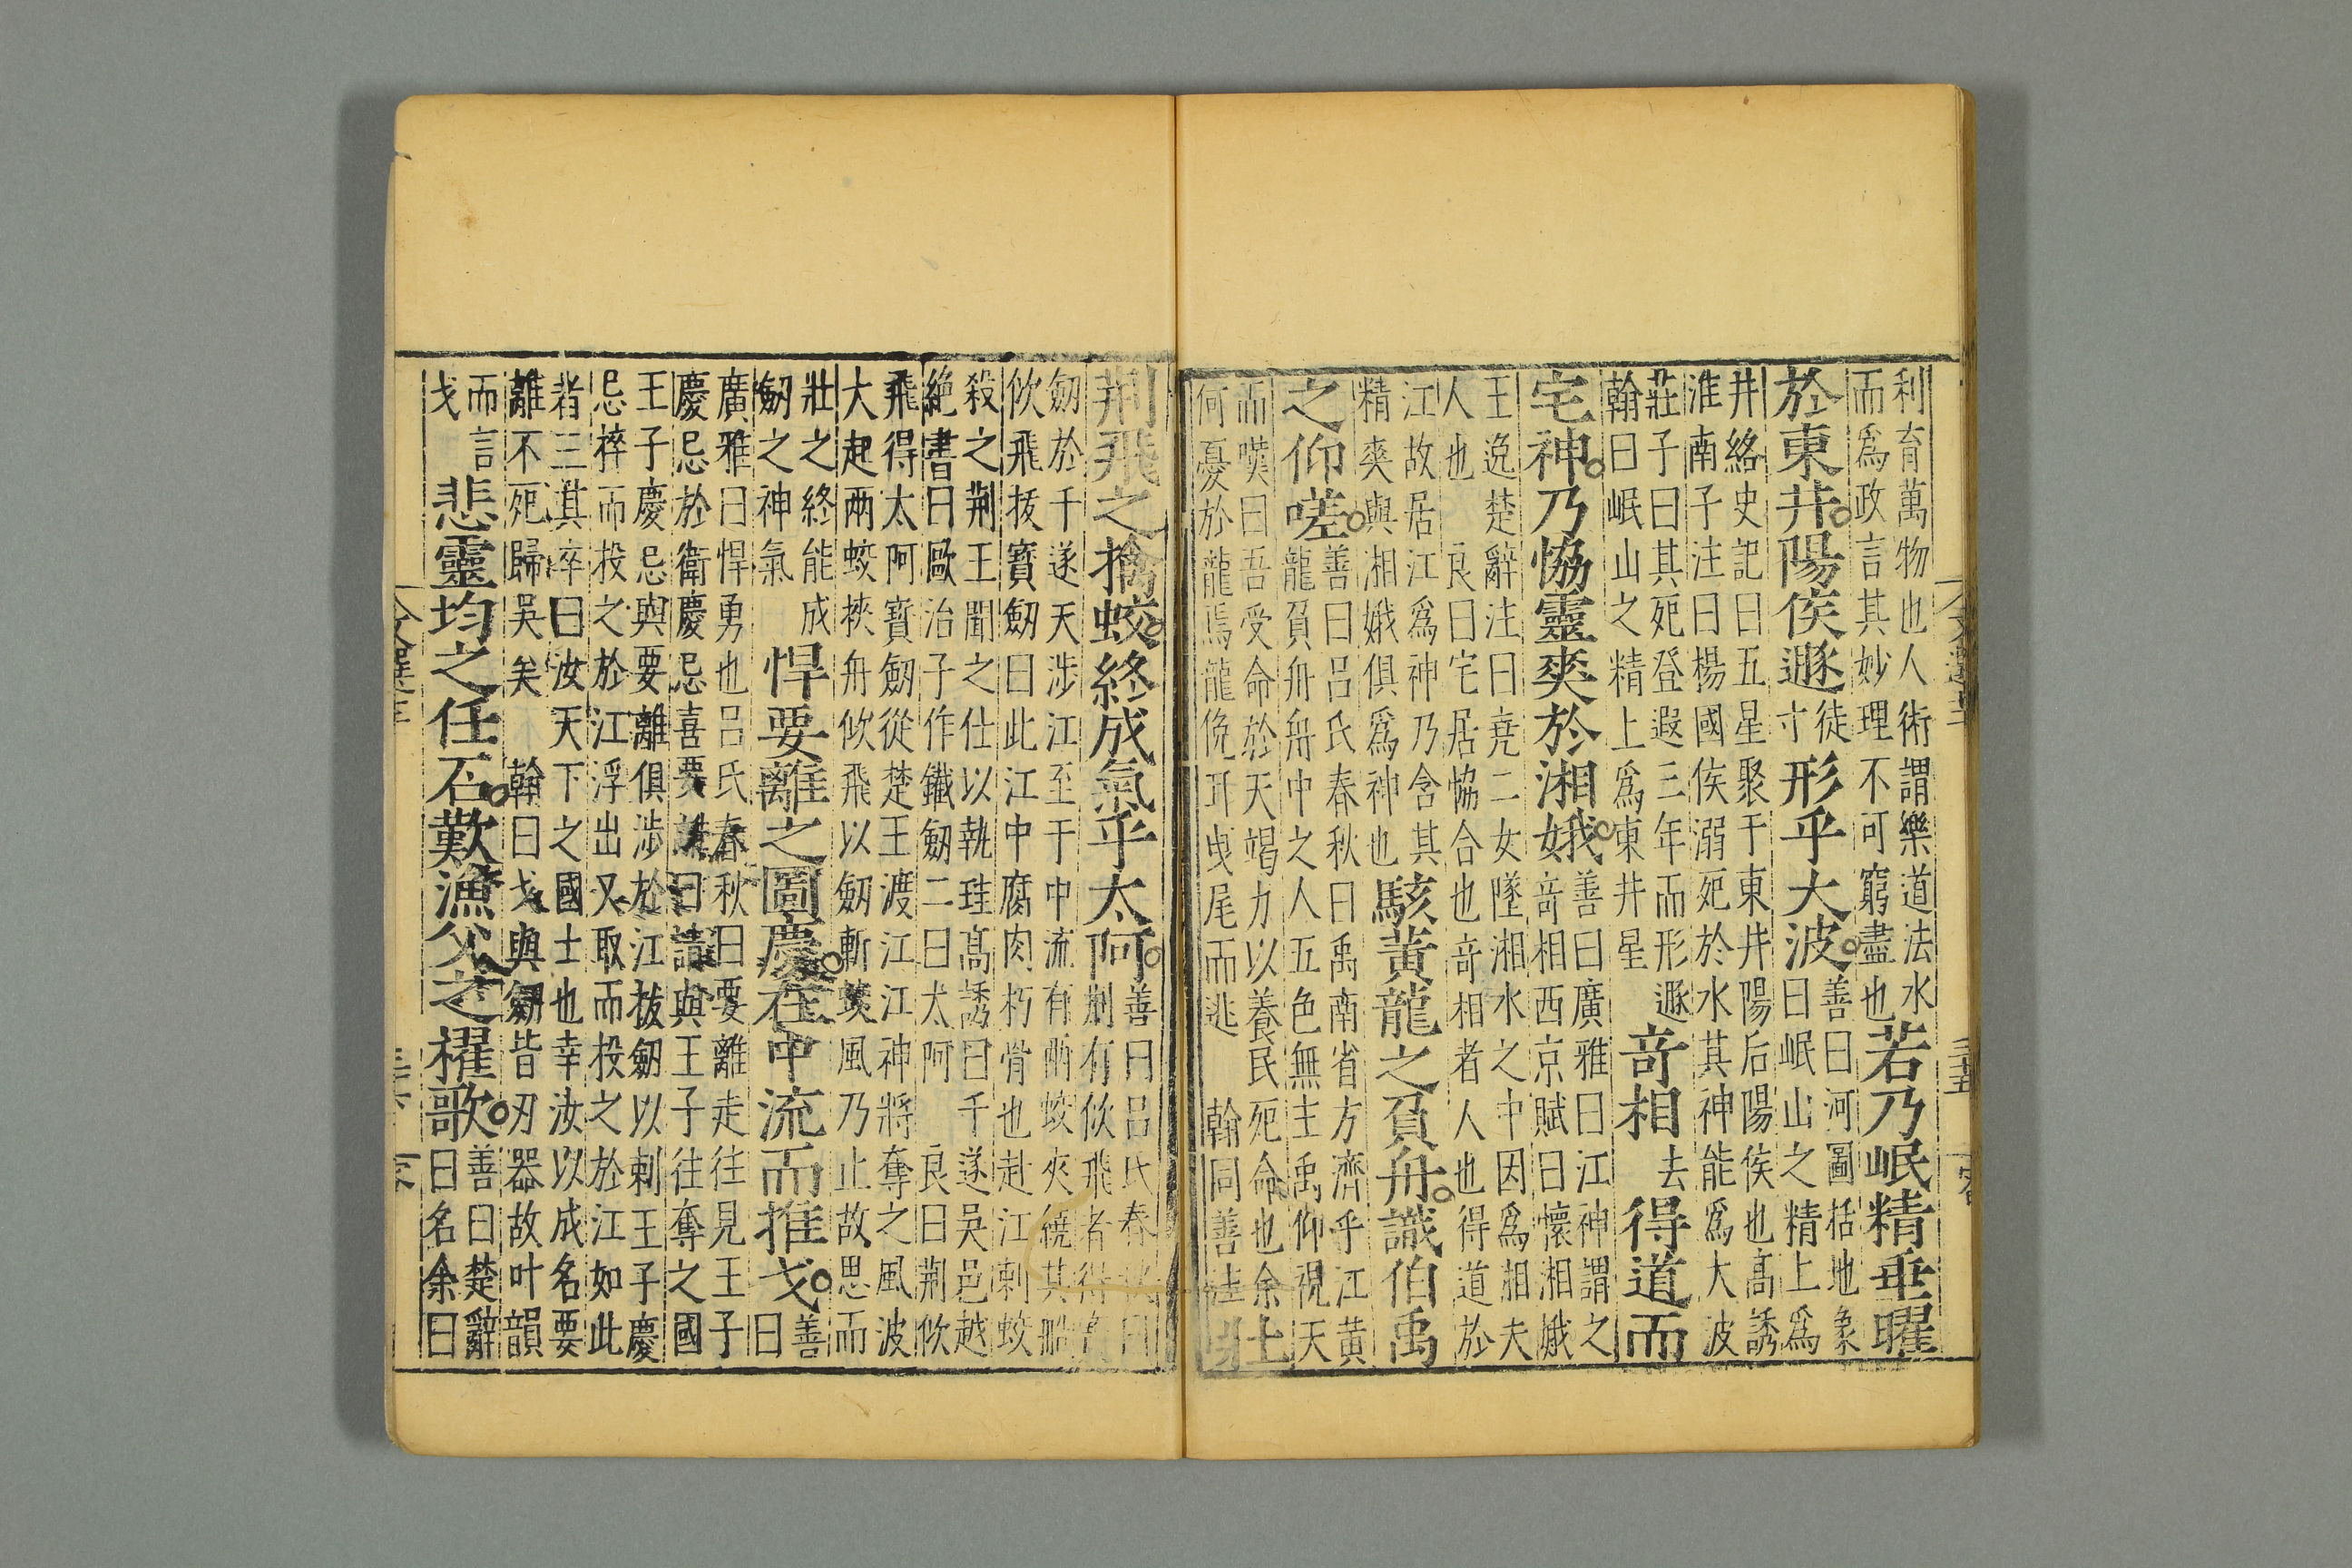 利育萬物也人術謂樂道法水
而爲政言其妙理不可窮盡也
若乃岷精垂曜
於東井陽侯遯
徒
寸
形乎大波
善曰河圖括地象
曰岷山之精上爲
井絡史記曰五星聚于東井陽后陽侯也髙誘
淮南子注曰楊國侯溺死於水其神能爲大波
莊子曰其死登遐三年而形遯
翰曰岷山之精上爲東井星
竒相
去
得道而
宅神乃恊靈爽於湘娥
善曰廣雅曰江神謂之
竒相西京賦曰懷湘娥
王逸楚辭注曰堯二女墜湘水之中因爲湘夫
人也 良曰宅居恊合也竒相者人也得道於
江故居江爲神乃含其
精爽與湘娥俱爲神也
駭黃龍之負舟識伯禹
之仰嗟
善曰吕氏春秋曰禹南省方濟乎江黃
龍負舟舟中之人五色無主禹仰視天
而嘆曰吾受命於天竭力以養民死命也余
何憂於龍焉龍俛耳曳尾而逃 翰同善
壮
荆飛之擒蛟終成氣乎太阿
善曰吕氏春秋曰
荆有佽飛者得
劒於千遂天涉江至于中流有兩蛟夾繞其船
佽飛拔寳劒曰此江中腐肉朽骨也赴江刺蛟
殺之荆王聞之仕以執珪髙誘曰千遂吳邑越
絶書曰歐冶子作鐵劒二曰太阿 良曰荆佽
飛得太阿寳劒從楚王渡江江神將奪之風波
大起兩蛟挾舟佽飛以劒斬蛟風乃止故思而
壯之終能成
劒之神氣
悍要離之圖慶在中流而推戈
善
曰
廣雅曰悍勇也吕氏春秋曰要離走往見王子
慶忌於衛慶忌喜要離曰請與王子往奪之國
王子慶忌與要離俱涉於江拔劒以刺王子慶
忌捽而投之於江浮出又取而投之於江如此
者三其卒曰汝天下之國士也幸汝以成名要
離不死歸吳矣 翰曰戈與劒皆刃器故叶韻
而言
戈
悲靈均之任石歎漁父之櫂歌
善曰楚辭
曰名余曰